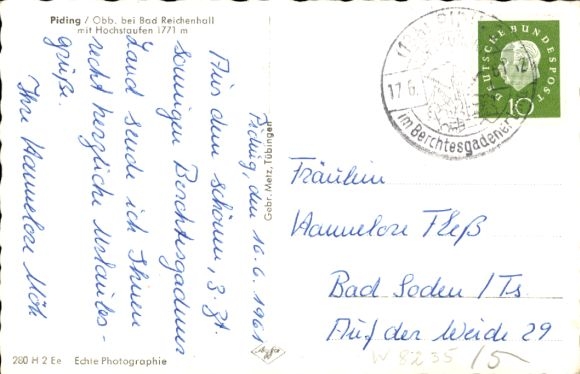 Piding / Obb. bei Bad Reichenhall
mit Hochstaufen 1771 m
Piding, den 16.6.1961
Aus dem schönen, z. Zt.
sonnigen Berchtesgadener
Land sende ich Ihnen
recht herzliche Urlaubs-
grüße.
Ihre Hannelore
Gebr. Metz, Tübingen
280 H 2 Ee Echte Photographie
17.6.
im Berchtesgadener
DEUTSCHE BUNDESPOST
10
Fräulein
Hannelore Fleß
Bad Soden / Ts.
Auf der Weide 29
W 8235 /5